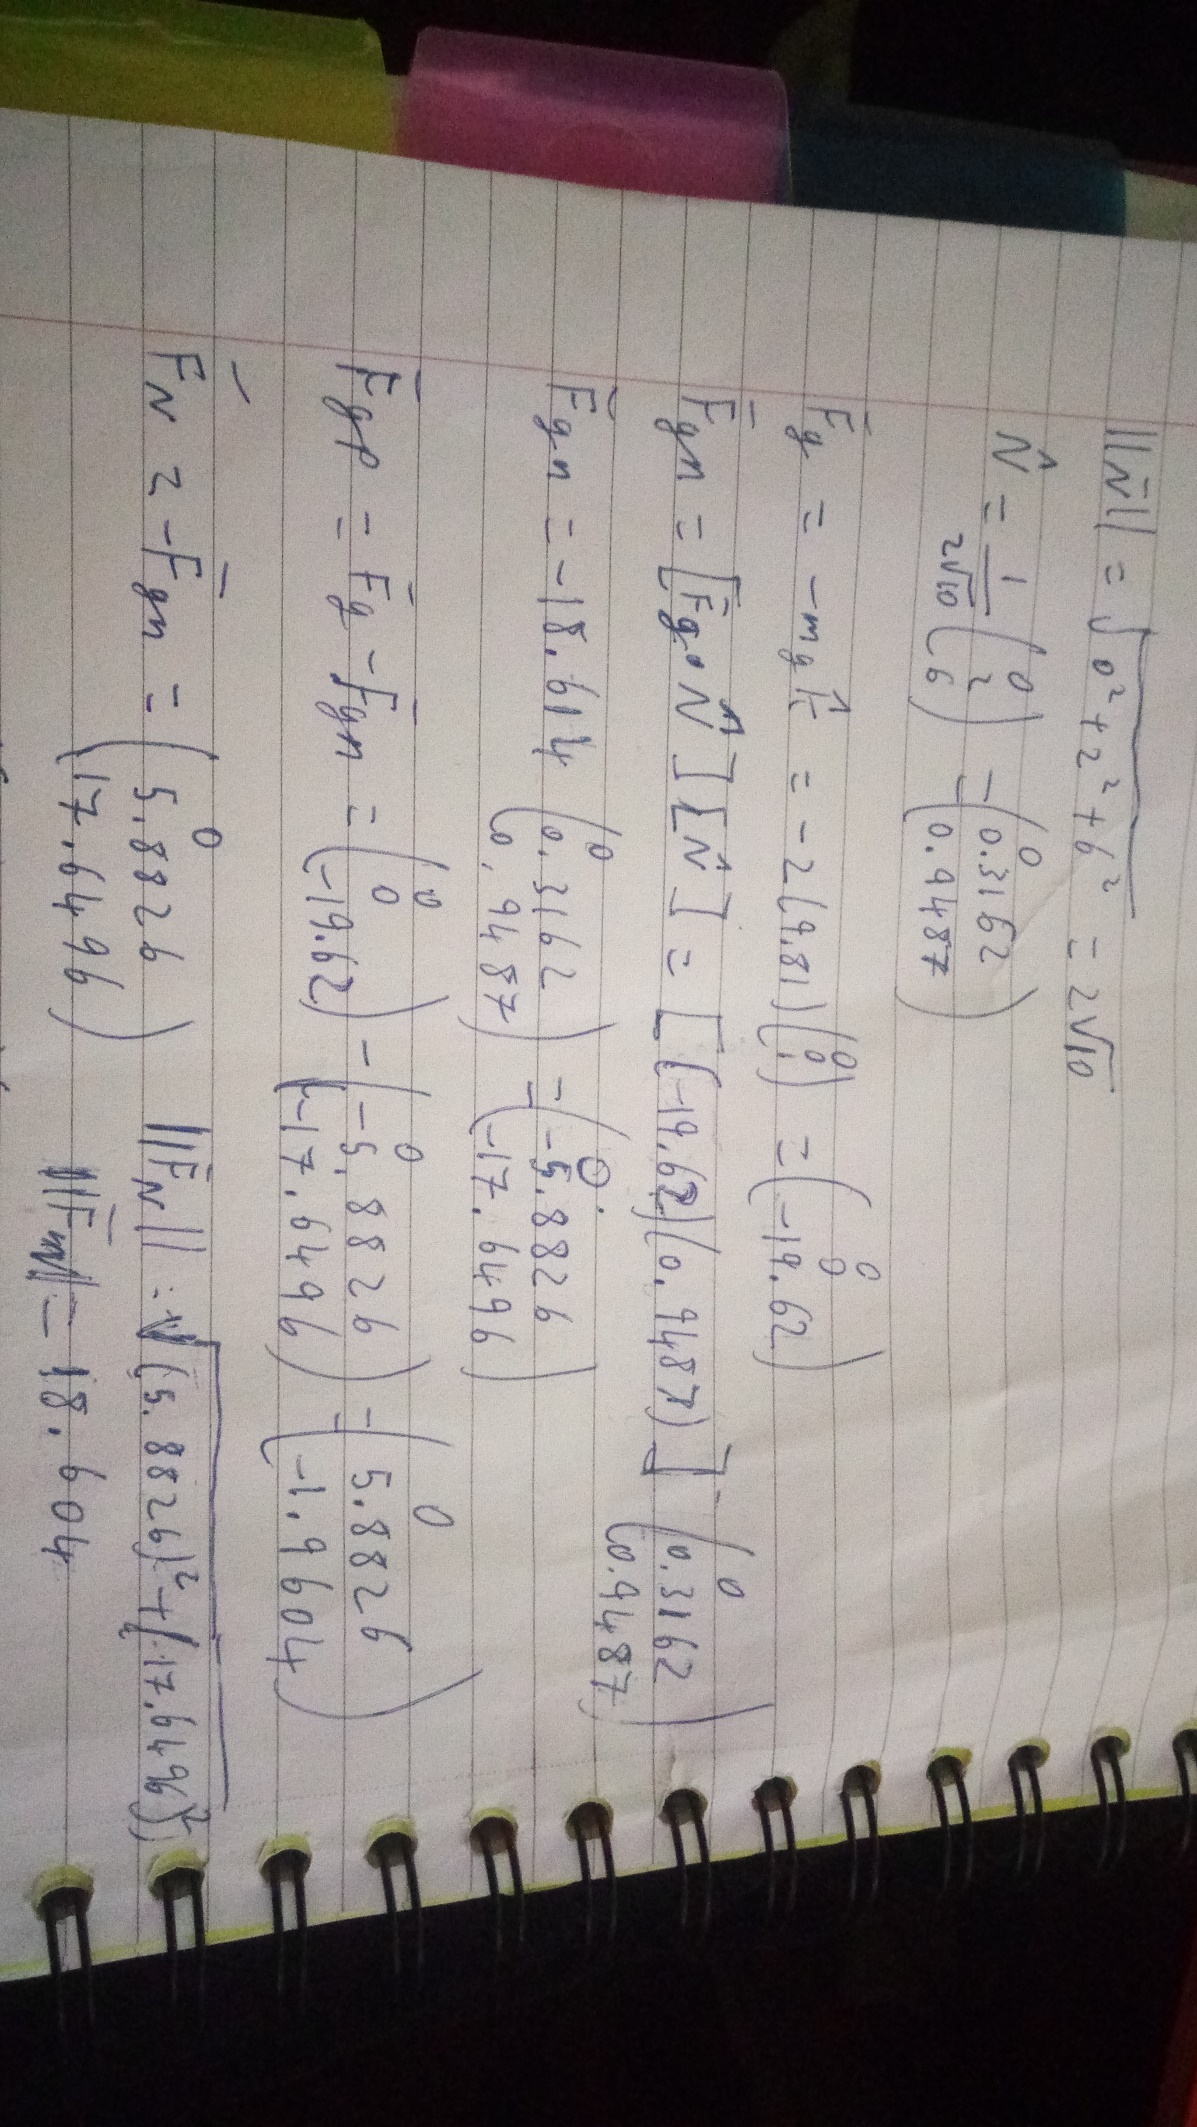 ||N̄|| = √0² + 2² + 6² = 2√10
N̂ = 1/2√10 (0 2 6) = (0 0.3162 0.9487)
F̄g = -mg k̂ = -2(9.81)(0 0 1) = (0 0 -19.62)
F̄gn = [F̄g • N̂][N̂] = [(-19.62)(0.9487)] (0 0.3162 0.9487)
F̄gn = -18.614 (0 0.3162 0.9487) = (0 -5.8826 -17.6496)
F̄gp = F̄g - F̄gn = (0 0 -19.62) - (0 -5.8826 -17.6496) = (0 5.8826 -1.9604)
F̄N = -F̄gn = (0 5.8826 17.6496) ||F̄N|| = √(5.8826)² + (17.6496)²
= 18.604